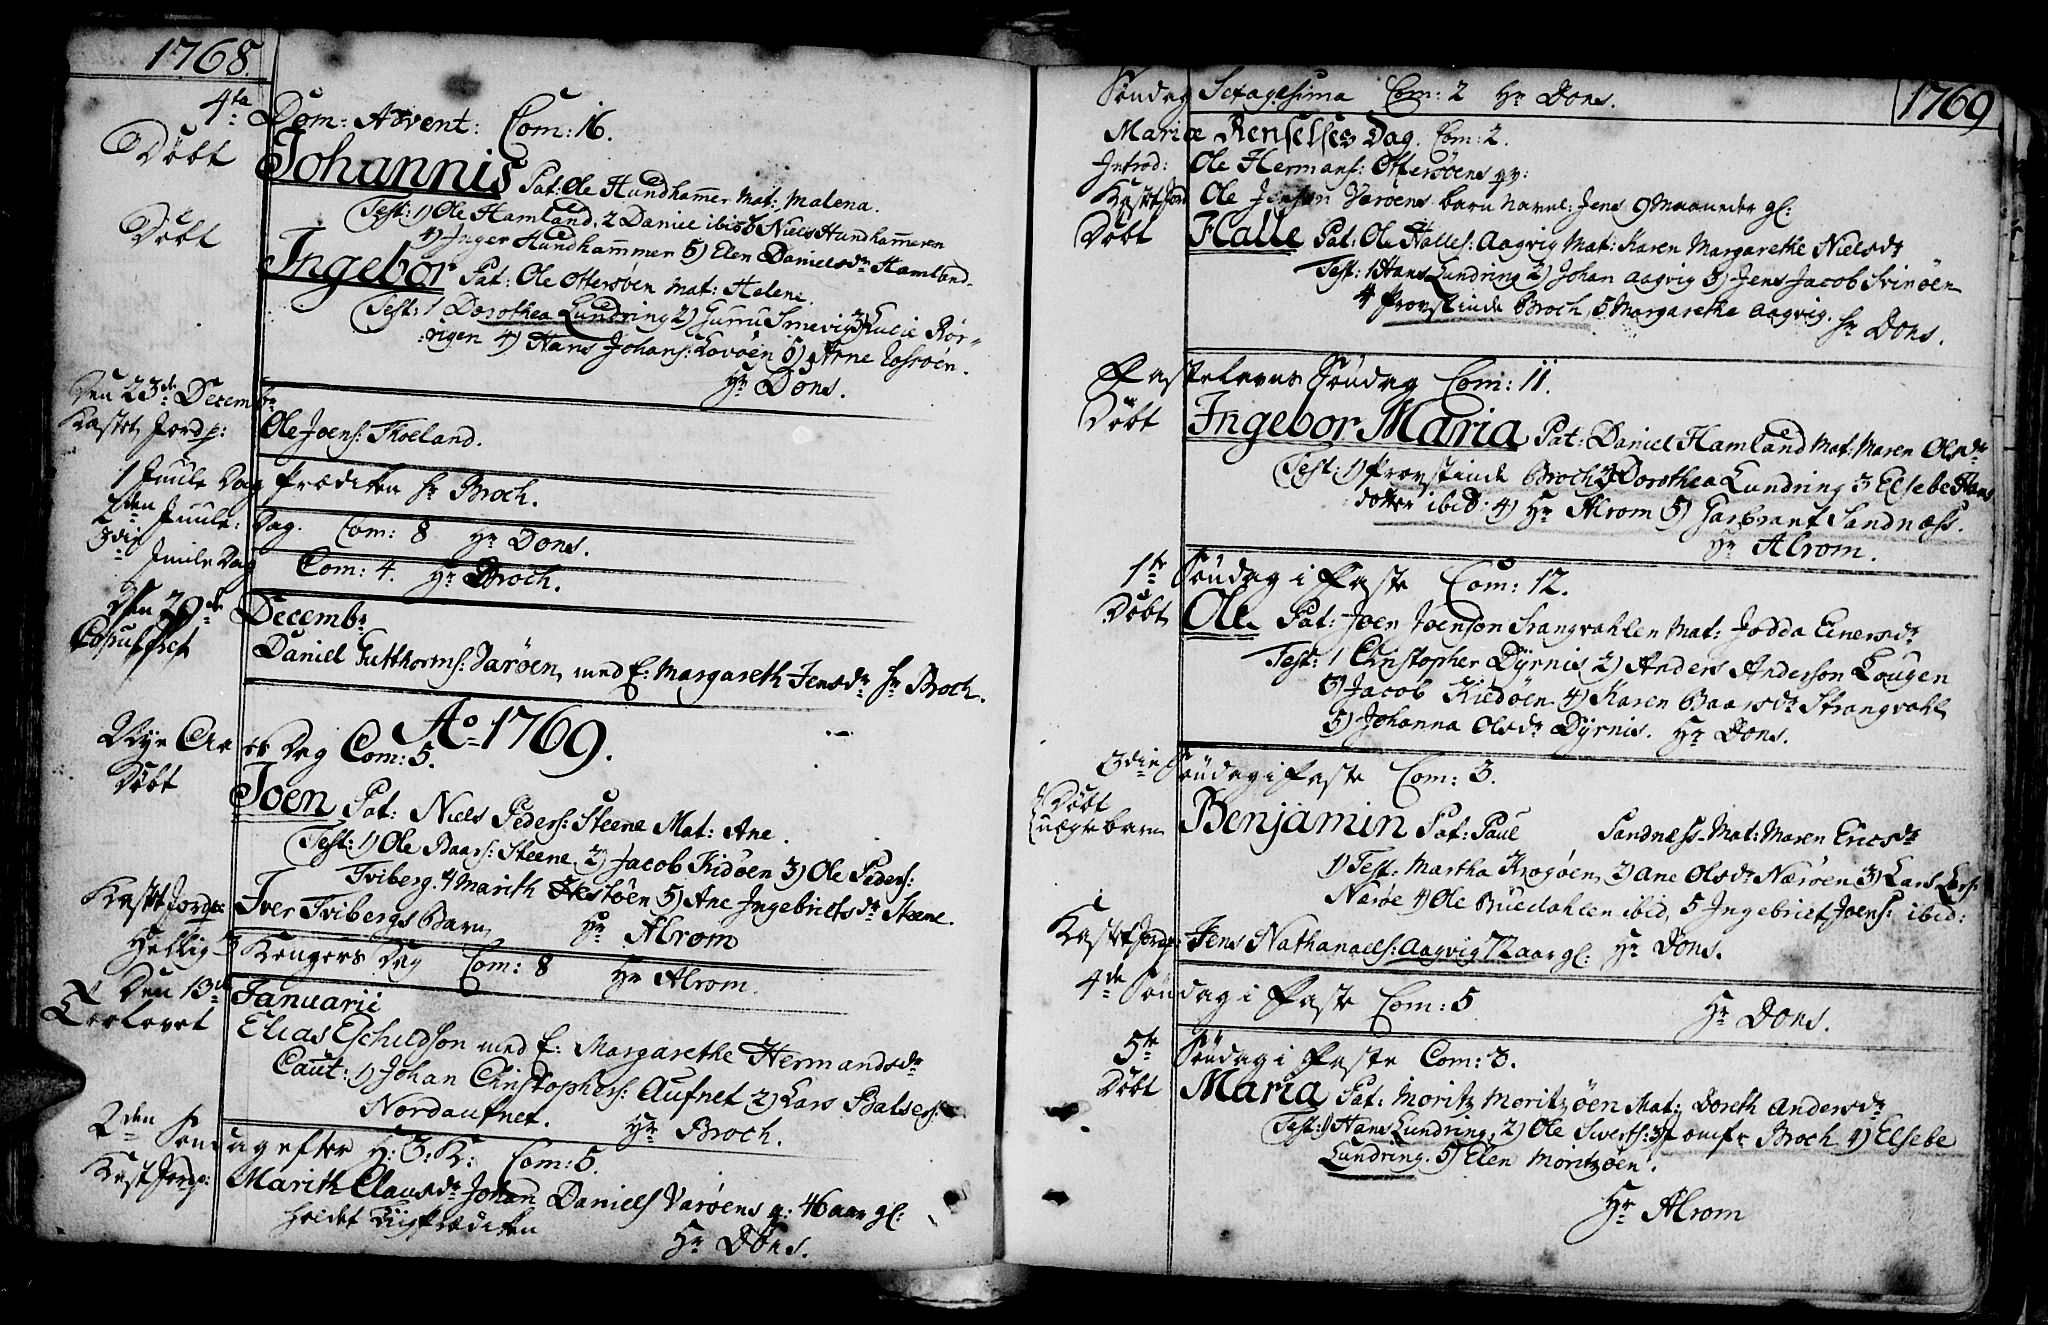 1768.
4te Dom: Advent: Com: 16.
Døbt Johannis Pat: Ole Hundhammer Mat: Malena.
Test: 1) Ole Hamland, 2 Daniel ibid Niels Hundhammeren
4) Inger Hundhammer 5) Elen Danielsdr Hamland.
Døbt Ingebor Pat: Ole Ottersøen Mat: Helene.
Test: 1 Dorothea Lundring 2) Gurru Smevig 3) Lucie Rør-
:vigen 4) Hans Johans: Lovøen 5) Arne
Hr Dons.
Den 23de Decembr
Kastet Jord p: Ole Joens: Thoeland.
1 Juule Dag Prædiken Hr Broch.
2den Juule: Dag. Com: 8 Hr Dons.
3die Juule Dag Com: 4. Hr Broch.
Den 29de Decembr
Copuleret Daniel Gutthorms: Varøen, med E: Margareth Jensdr Hr Broch.
Ao 1769.
Nye Aars Dag Com: 5.
Døbt Joen Pat: Niels Peders: Steene Mat: Ane.
Test: 1) Ole Baars: Steene, 2) Jacob Kidøen 3) Ole Peders:
Tviberg. 4 Marith Hestøen 5) Ane Ingebrietsdr Steene.
Kastet Jord p: Iver Tvibergs Barn, Hr Alrom
Hellig 3 Kongers Dag Com: 8 Hr Alrom.
Den 13de Januarii
Trolovet Elias Eschildson med E: Margarethe Hermandsdr
Caut: 1) Johan Christophers: Aufnet 2) Lars Balsers:
Nordaufnet. Hr Broch.
2den Søndag efter H: 3: K: Com: 5.
Kast Jord p: Marith Clausdr Johan Daniels Varøens q: 46 aar gl:
holdet Liigprædiken Hr Dons.
1769
Søndag Sexagesima Com: 2 Hr Dons.
Mariæ Renselses Dag. Com: 2.
Introd: Ole Hermans: Ottersøens qv:
Kastet Jord Ole Jenson Varøens barn navnl: Jens 9 Maaneder gl:
Døbt Halle Pat: Ole Halles: Aagvig Mat: Karen Margarethe Nielsdr
Test: 1 Hans Lundring 2) Johan Aagvig 3) Jens Jacob Svinøen
4 Provstinde Broch, 5 Margarethe Aagvig. Hr Dons.
Fastelavns Søndag Com: 11.
Døbt Ingebor Maria Pat: Daniel Hamland Mat: Maren Olsdr
Test: 1) Provstinde Broch 2) Dorothea Lundring 3 Elsebe Hans
dotter ibid: 4) Hr Alrom 5) Garbrant Sandnæss.
Hr Alrom.
1te Søndag i Faste Com: 12.
Døbt Ole Pat: Joen Joenson Strangvahlen Mat: Jodda Einersdr
Test: 1 Christopher Dyrnis 2) Anders Anderson Lougen
3) Jacob Kiedøen 4) Karen Baarsdr Strangvahl
5) Johanna Olsdr Dyrnis. Hr Dons.
3die Søndag i Faste Com: 3.
Døbt
uægte barn Benjamin Pat: Paul Sandnæss Mat: Maren Ericsdr
1) Test: Martha Krogøen, 2) Ane Olsdr Nærøen 3) Lars Lars:
Nærøe 4) Ole Buedahlen ibid, 5 Ingebriet Joens: ibid:
Kastet Jord p: Jens Nathanaels: Aagvig 72 aar gl: Hr Dons.
4de Søndag i Faste Com: 5 Hr Dons.
5te Søndag i Faste Com: 3.
Døbt Maria Pat: Moritz Moritzøen Mat: Doreth Andersdr
Test: 1) Hans Lundring, 2) Ole Swerts: 3) Jomfr Broch 4) Elsebe
Lundring. 5) Elen Moritzøen.
Hr Alrom